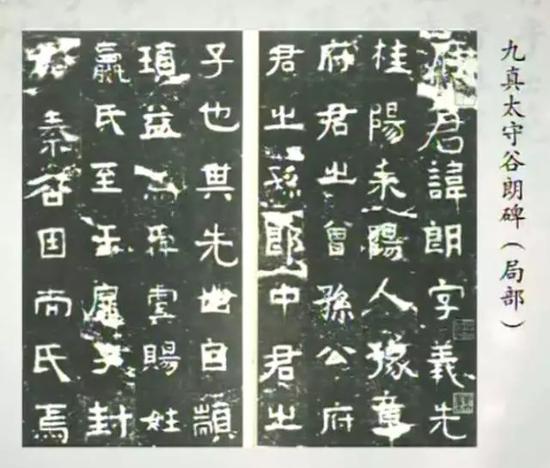 九真太守谷朗碑（局部）
府君諱朗字義先
桂陽耒陽人豫章
府君之曾孫公府
君之孫郎中君之
子也其先出自顓
頊益為舜虞賜姓
嬴氏至于扉子封
秦谷因而氏焉